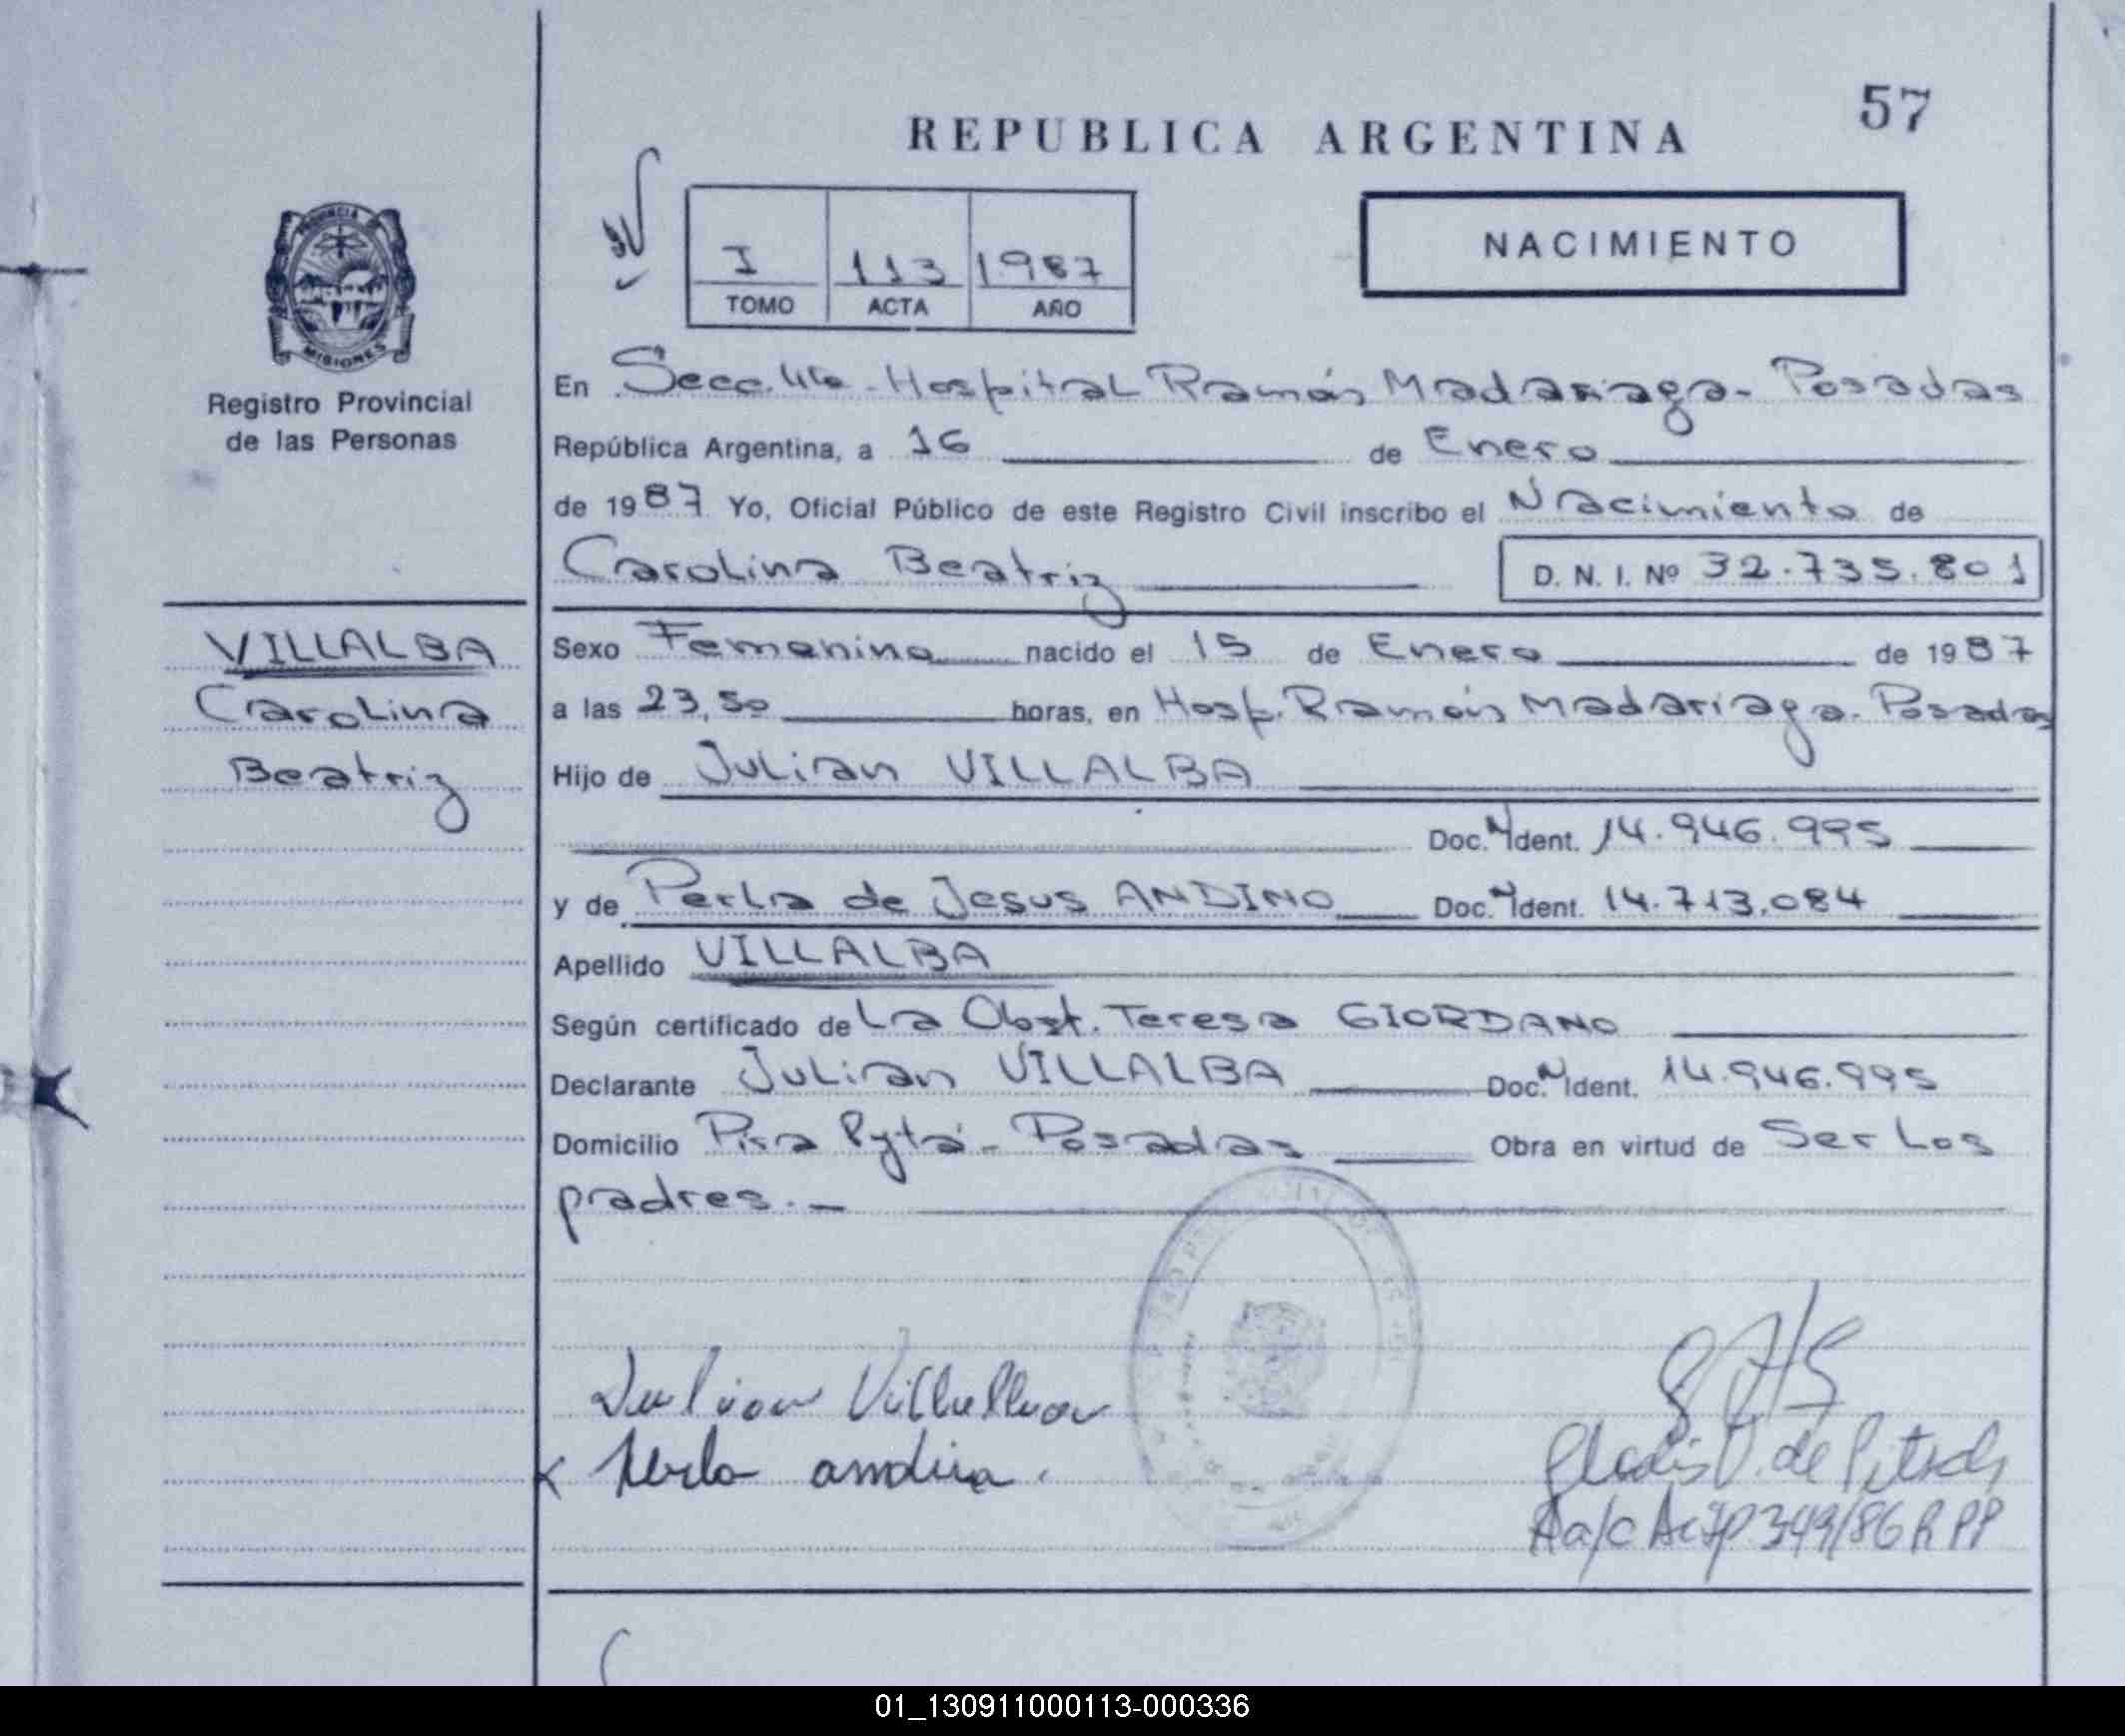 57
REPUBLICA ARGENTINA
NACIMIENTO
I 113 1987
TOMO ACTA AÑO
PROVINCIA
MISIONES
Registro Provincial
de las Personas
VILLALBA
Carolina
Beatriz
En Secc. 4ta - Hospital Ramón Madariaga - Posadas
República Argentina, a 16 de Enero
de 1987 Yo, Oficial Público de este Registro Civil inscribo el Nacimiento de
Carolina Beatriz D. N. I. Nº 32.735.801
Sexo Femenino nacido el 15 de Enero de 1987
a las 23,50 horas, en Hosp. Ramón Madariaga - Posadas
Hijo de Julian VILLALBA
Doc. N Ident. 14.946.995
y de Perla de Jesus ANDINO Doc. N Ident. 14.713.084
Apellido VILLALBA
Según certificado de La Obst. Teresa GIORDANO
Declarante Julian VILLALBA Doc. N Ident. 14.946.995
Domicilio Pira Pytá - Posadas Obra en virtud de Ser Los
padres.-
Julian
Perla andino
Gladis V. de
A a/c 349/86 R PP
01_130911000113-000336